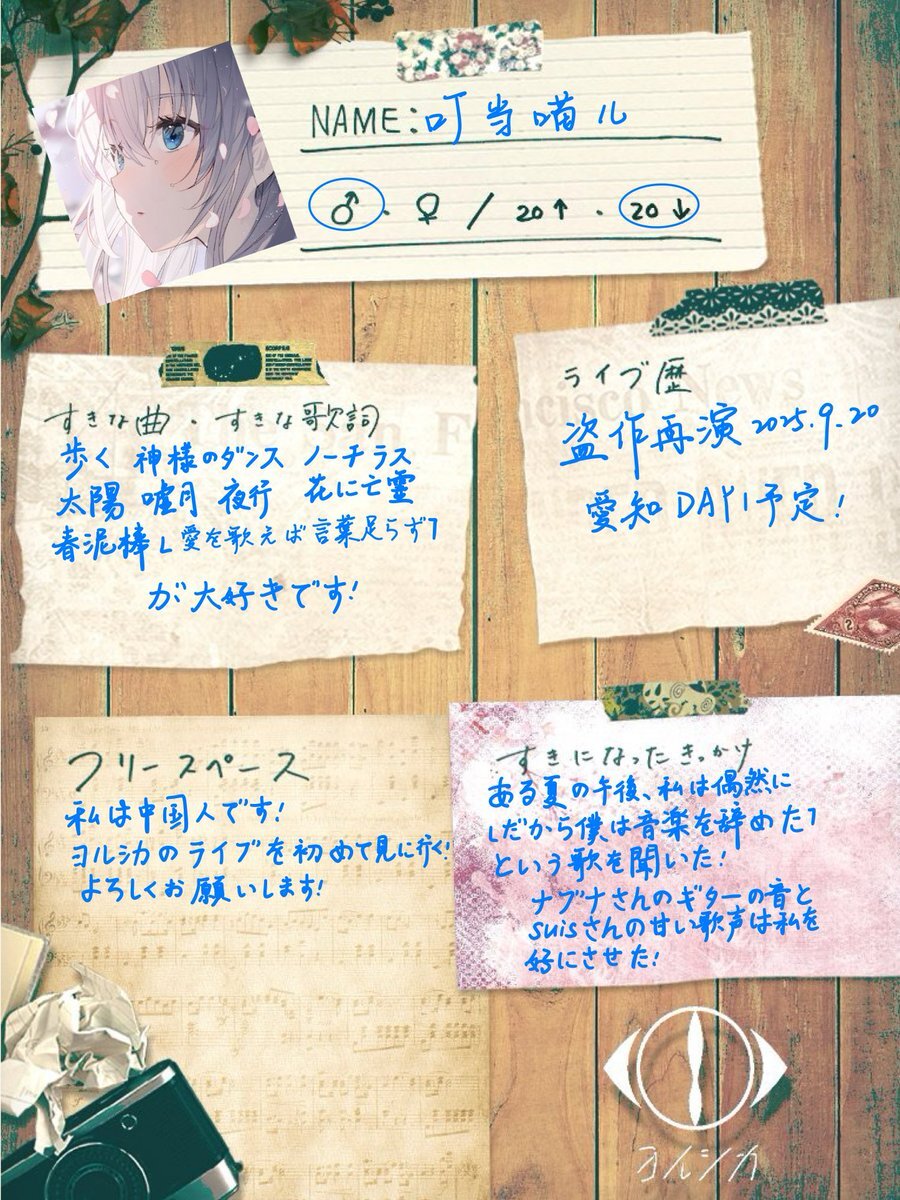 NAME: 叮当喵儿
♂・♀ / 20↑・20↓
すきな曲・すきな歌詞
歩く 神様のダンス ノーチラス
太陽 嘘月 夜行 花に亡霊
春泥棒「愛を歌えば言葉足らず」
が大好きです!
ライブ歴
盗作再演 2025.9.20
愛知 DAY1予定!
フリースペース
私は中国人です!
ヨルシカのライブを初めて見に行く!
よろしくお願いします!
すきになったきっかけ
ある夏の午後、私は偶然に
「だから僕は音楽を辞めた」
という歌を聞いた!
ナブナさんのギターの音と
suisさんの甘い歌声は私を
好にさせた!
ヨルシカ